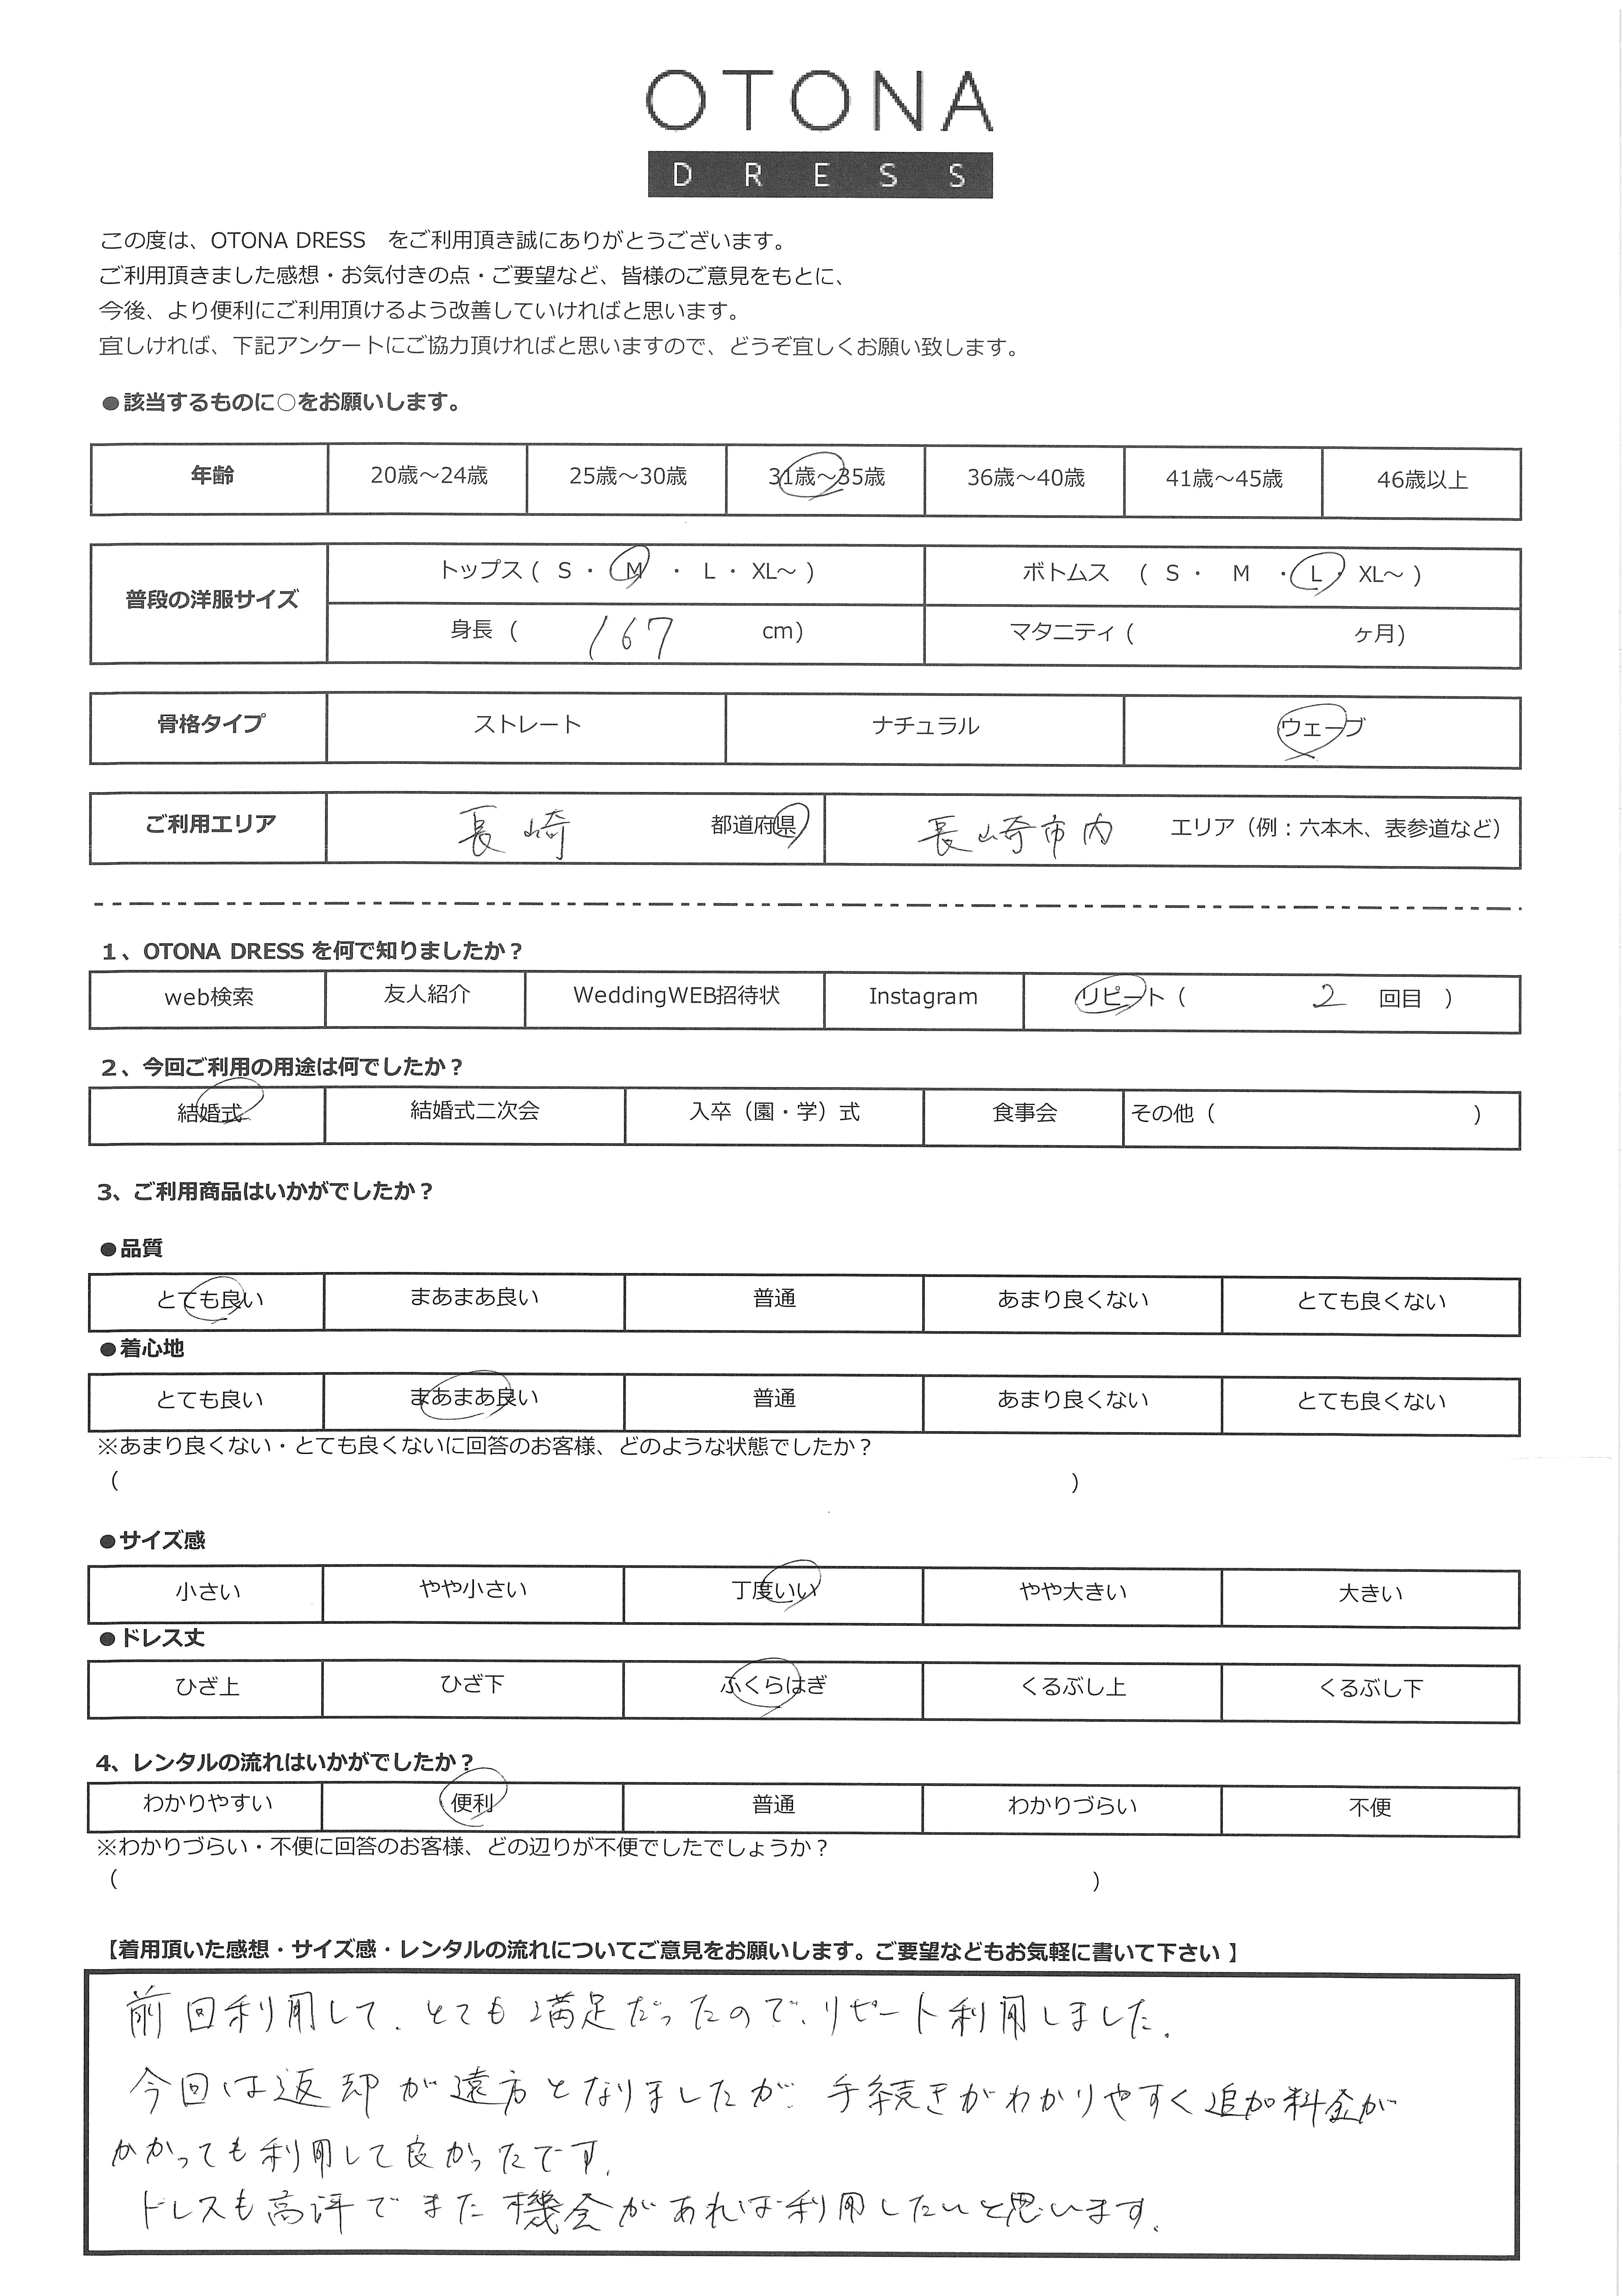 OTONA
DRESS
この度は、OTONA DRESS　をご利用頂き誠にありがとうございます。
ご利用頂きました感想・お気付きの点・ご要望など、皆様のご意見をもとに、
今後、より便利にご利用頂けるよう改善していければと思います。
宜しければ、下記アンケートにご協力頂ければと思いますので、どうぞ宜しくお願い致します。
●該当するものに○をお願いします。
年齢 20歳～24歳 25歳～30歳 31歳～35歳 36歳～40歳 41歳～45歳 46歳以上
普段の洋服サイズ トップス ( S ・ M ・ L ・ XL～ ) ボトムス ( S ・ M ・ L ・ XL～ )
身長 ( 167 cm) マタニティ ( ヶ月)
骨格タイプ ストレート ナチュラル ウェーブ
ご利用エリア 長崎 都道府県 長崎市内 エリア（例：六本木、表参道など）
1、OTONA DRESS を何で知りましたか？
web検索 友人紹介 WeddingWEB招待状 Instagram リピート ( 2 回目 )
2、今回ご利用の用途は何でしたか？
結婚式 結婚式二次会 入卒（園・学）式 食事会 その他 ( )
3、ご利用商品はいかがでしたか？
●品質
とても良い まあまあ良い 普通 あまり良くない とても良くない
●着心地
とても良い まあまあ良い 普通 あまり良くない とても良くない
※あまり良くない・とても良くないに回答のお客様、どのような状態でしたか？
( )
●サイズ感
小さい やや小さい 丁度いい やや大きい 大きい
●ドレス丈
ひざ上 ひざ下 ふくらはぎ くるぶし上 くるぶし下
4、レンタルの流れはいかがでしたか？
わかりやすい 便利 普通 わかりづらい 不便
※わかりづらい・不便に回答のお客様、どの辺りが不便でしたでしょうか？
( )
【着用頂いた感想・サイズ感・レンタルの流れについてご意見をお願いします。ご要望などもお気軽に書いて下さい 】
前回利用して、とても満足だったので、リピート利用しました。
今回は返却が遠方となりましたが、手続きがわかりやすく追加料金が
かかっても利用して良かったです。
ドレスも高評でまた機会があれば利用したいと思います。